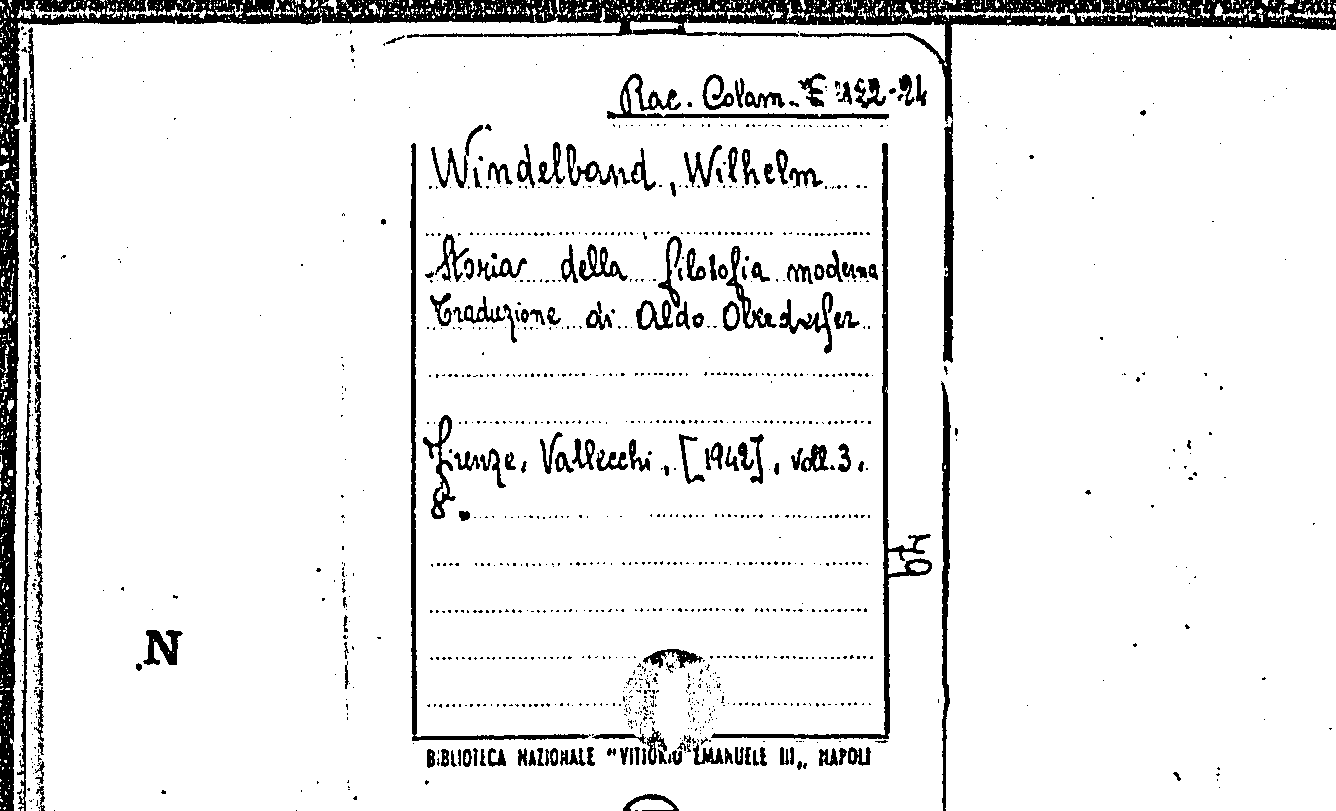 Rac. Colam. E 422-24
Windelband, Wilhelm
Storia della filosofia moderna
Traduzione di Aldo Oberdorfer
Firenze, Vallecchi, [1942], voll. 3.
8°.
49
N
BIBLIOTECA NAZIONALE "VITTORIO EMANUELE III„ NAPOLI